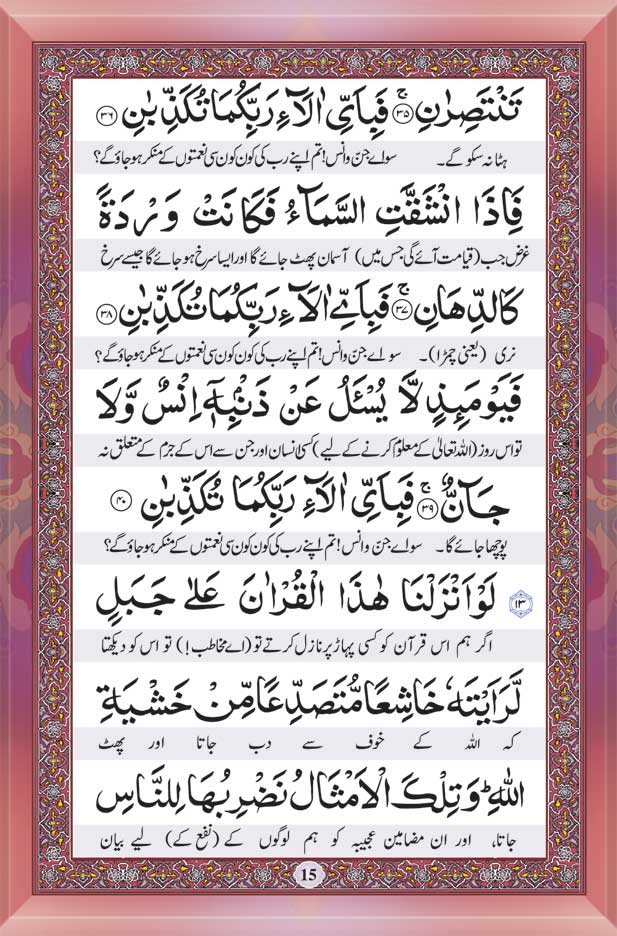 تَنْتَصِرٰنِ ۚ﴿۳۵﴾ فَبِاَيِّ اٰلَآءِ رَبِّكُمَا تُكَذِّبٰنِ ﴿۳۶﴾
ہٹا نہ سکو گے۔ سو اے جن وانس! تم اپنے رب کی کون کون سی نعمتوں کے منکر ہو جاؤ گے؟
فَاِذَا انْشَقَّتِ السَّمَآءُ فَكَانَتْ وَرْدَةً
غرض جب (قیامت آئے گی جس میں) آسمان پھٹ جائے گا اور ایسا سرخ ہو جائے گا جیسے سرخ
كَالدِّهَانِ ۚ﴿۳۷﴾ فَبِاَيِّ اٰلَآءِ رَبِّكُمَا تُكَذِّبٰنِ ﴿۳۸﴾
نری (یعنی چمڑا)۔ سو اے جن وانس! تم اپنے رب کی کون کون سی نعمتوں کے منکر ہو جاؤ گے؟
فَيَوْمَئِذٍ لَّا يُسْـَٔلُ عَنْ ذَنْۢبِهٖۤ اِنْسٌ وَّلَا
تو اس روز (اللہ تعالیٰ کے معلوم کرنے کے لیے) کسی انسان اور جن سے اس کے جرم کے متعلق نہ
جَآنٌّ ۚ﴿۳۹﴾ فَبِاَيِّ اٰلَآءِ رَبِّكُمَا تُكَذِّبٰنِ ﴿۴۰﴾
پوچھا جائے گا۔ سو اے جن وانس! تم اپنے رب کی کون کون سی نعمتوں کے منکر ہو جاؤ گے؟
﴿۱۳﴾ لَوْ اَنْزَلْنَا هٰذَا الْقُرْاٰنَ عَلٰى جَبَلٍ
اگر ہم اس قرآن کو کسی پہاڑ پر نازل کرتے تو (اے مخاطب!) تو اس کو دیکھتا
لَّرَاَيْتَهٗ خَاشِعًا مُّتَصَدِّعًا مِّنْ خَشْيَةِ
کہ اللہ کے خوف سے دب جاتا اور پھٹ
اللّٰهِؕ وَتِلْكَ الْاَمْثَالُ نَضْرِبُهَا لِلنَّاسِ
جاتا، اور ان مضامین عجیبہ کو ہم لوگوں کے (نفع کے) لیے بیان
15